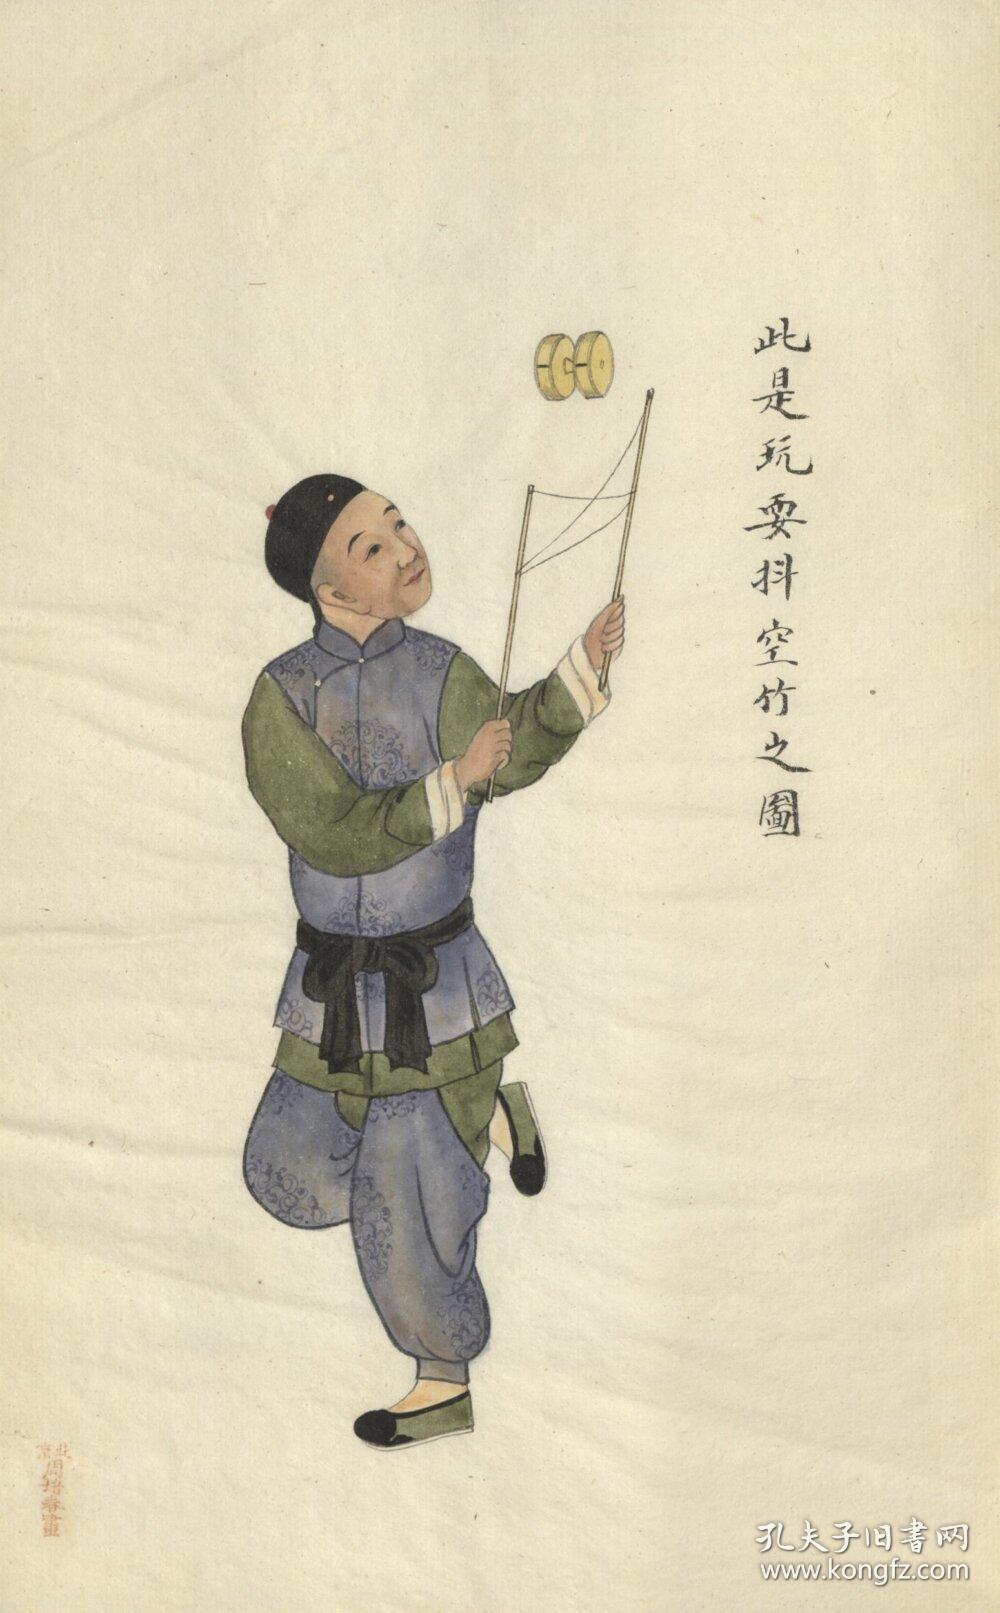 此是玩耍抖空竹之圖
北京
周培春畫
孔夫子旧書网
www.kongfz.com